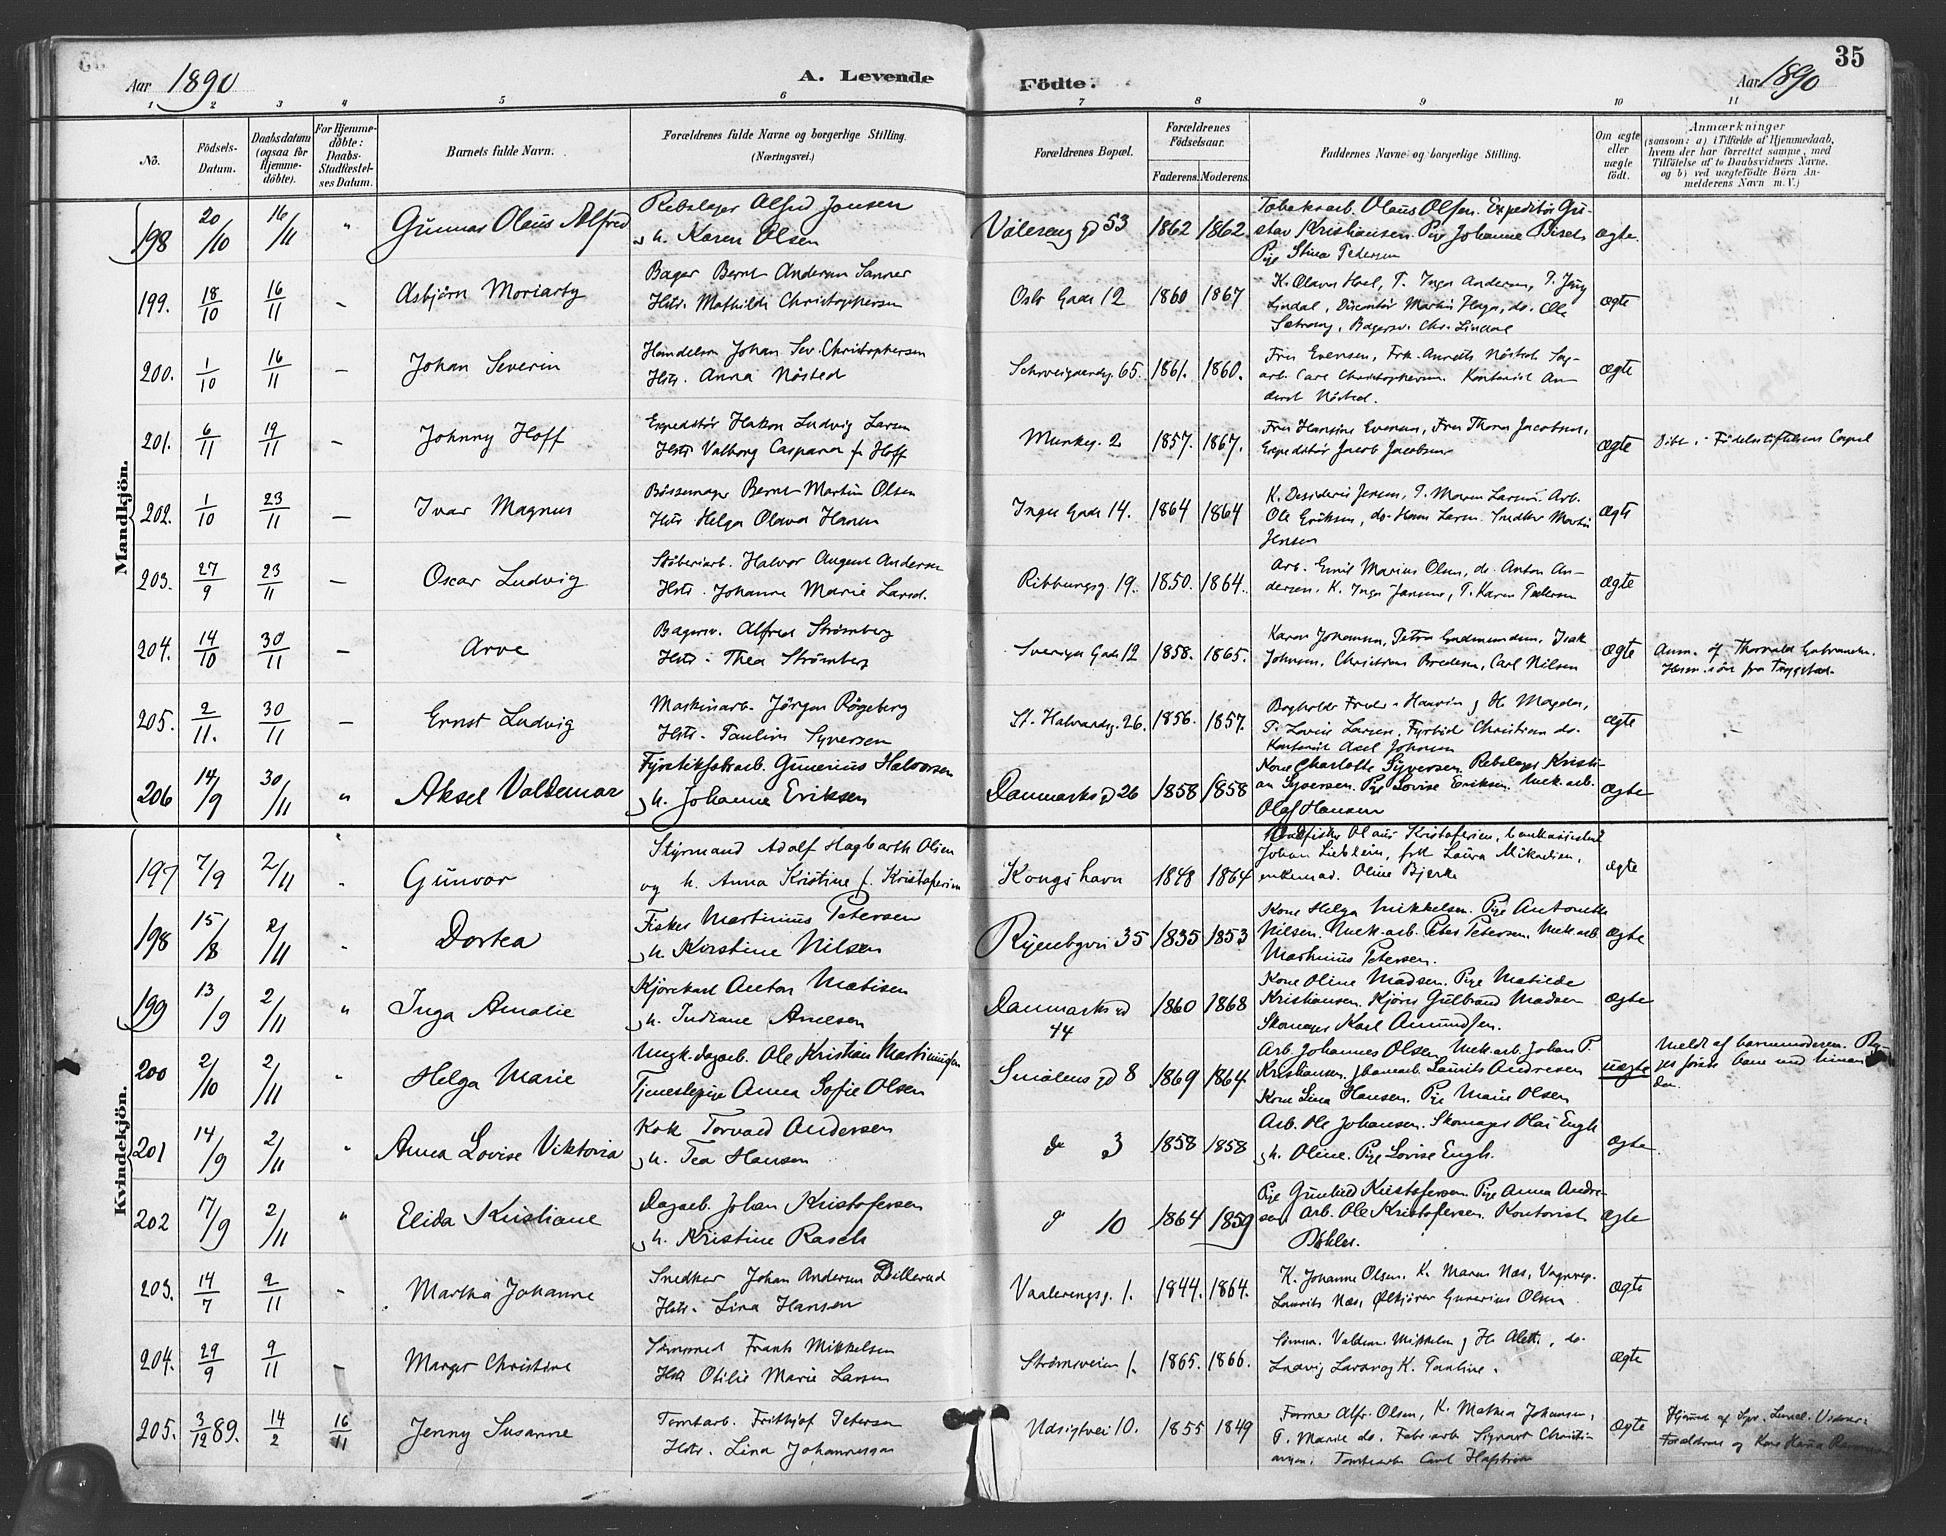 Aar 1890
A. Levende
Födte.
Aar 1890
35
1 2 3 4 5 6 7 8 9 10 11
No.
Födsels-
Datum.
Daabsdatum
(ogsaa for
Hjemme-
döbte).
For Hjemme-
döbte:
Daabs-
Stadfæstel-
ses Datum.
Barnets fulde Navn.
Forældrenes fulde Navne og borgerlige Stilling.
(Næringsvei.)
Forældrenes Bopæl.
Forældrenes
Födselsaar.
Faderens. Moderens.
Faddernes Navne og borgerlige Stilling.
Om ægte
eller
uægte
födt.
Anmærkninger
(saasom: a) i Tilfælde af Hjemmedaab,
hvem der har forrettet samme, med
Tilföielse af to Daabsvidners Navne.
og b) ved uægtefödte Börn An-
melderens Navn m. V.)
Mandkjön.
198 20/10 16/11 " Gunnar Olaus Alfred Rebslager Alfred Jensen
og h. Karen Olsen
Vålereng gd 53 1862 1862. Tobaksarb. Olaus Olsen. Expeditör Gu-
stav Kristiansen. Pige Johanne
Pige Stina Pedersen
ægte.
199. 18/10 16/11 – Asbjörn Moriarty Bager Bernt Andersen Sanner
Hstr. Mathilde Christophersen
Oslo Gade 12 1860 1867
Lindal, Martin do. Ole
Bagersv. Chr. Lindal
ægte
200. 1/10 16/11 – Johan Severin Handelsm Johan Sev. Christophersen
Hstr. Anna Nösted
Schweigaardsg. 65. 1861. 1860. Fru Evensen, Frk. Annette Nösted
arb. Carl Christophersen. Kontorist An-
Nösted.
ægte
201. 6/11 19/11 – Johnny Hoff Expeditör Hakon Ludvig Larsen
Hstr Valborg Caspara f. Hoff
Munkeg. 2 1857. 1867. Fru Hansine Evensen, Fru Thora Jacobsen,
Expeditör Jacob Jacobsen
ægte Födselsstiftelsens Capel
202. 1/10 23/11 – Ivar Magnus Bössemager Bernt Martin Olsen
Hstr Helga Olava Hansen
Inges Gade 14. 1864 1864 K. Desideria Jensen, P. Maren Larsen. Arb.
Ole Eriksen, do. Hans Larsen. Snedker Martin
Jensen
ægte
203. 27/9 23/11 – Oscar Ludvig Stöberiarb. Halvor August Andersen
Hstr. Johanne Marie Larsd.
Ribbungsg. 19. 1850. 1864. Arb. Emil Marius Olsen, do. Anton An-
dersen. K. Inga Jansen, P. Karen Pedersen
ægte
204. 14/10 30/11 – Arve Bagersv. Alfred Strömberg
Hstr. Thea Strömberg
Sveriges Gade 12 1858. 1865. Karen Johansen, Petra Gudmundsen, Isak
Johnsen. Christian Bredesen, Carl Nilsen
ægte Anm. af Thorvald
fra Trygstad.
205. 2/11. 30/11 – Ernst Ludvig Maskinarb. Jörgen Rögeberg
Hstr. Pauline Syversen
St. Halvardsg. 26. 1856. 1857.
P. Lovise Larsen. Fyrböd Christian do.
Kontorist Axel Johnsen
ægte –
206 14/9 30/11 " Aksel Valdemar Fyrstikfabarb. Gunerius Halvorsen
og h. Johanne Eriksen
Danmarks gd 26 1858 1858 Kone Charlotte Syversen. Rebslager Kristi-
an Syversen. Pige Lovise Eriksen. Mek. arb.
Olaf Hansen
ægte
Kvindekjön.
197 7/9 2/11 " Gunvor Styrmand Adolf Hagbarth Olsen
og h. Anna Kristine f. Kristofersen
Kongshavn 1848 1864 Olaus Kristofersen,
Johan Lieblein, frk Laura Mikaelsen,
Oline Bjerke
ægte
198 15/8 2/11 " Dortea Fisker Martinius Petersen
og h. Kirstine Nilsen
Ryenbgvei 35 1835 1853 Kone Helga Mikkelsen. Pige Antonette
Nilsen. Mek. arb. Peter Petersen. Mek arb.
Martinius Petersen.
ægte
199 13/9 2/11 " Inga Amalie Kjörekarl Anton Matisen
og h. Indiane Anelsen
Danmarks gd
44
1860 1868 Kone Oline Madsen. Pige Matilde
Kristiansen. Kjörer Gulbrand Madsen
Skomager Karl Amundsen.
ægte
200 2/10 2/11 " Helga Marie Ungk. dagarb. Ole Kristian Martiniussen
Tjenestepige Anna Sofie Olsen
Smålens gd 8 1869 1864. Arb. Johannes Olsen. Mek. arb. Johan P.
Kristiansen. Jbanearb. Laurits Andresen
Kone Lina Hansen. Pige Marie Olsen
uægte Meldt af barnemoderen.
förste barn med
201 14/9 2/11 " Anna Lovise Viktoria Kok Torvald Andersen
og h. Tea Hansen
do 3 1858 1858 Arb. Ole Johansen. Skomager Olai Engh
og h. Oline. Pige Lovise Engh.
ægte
202 17/9 2/11 " Elida Kristiane Dagarb. Johan Kristofersen
og h. Kristine Rasch
do 10 1864 1859 Pige Gunhild Kristofersen. Pige Anna Andre-
sen. Arb. Ole Kristofersen. Kontorist
Böhler.
ægte
203. 14/7 9/11 " Martha Johanne Snedker Johan Andersen Dillerud
Hstr. Lina Hansen
Vaalerengsg. 1. 1844. 1864. K. Johanne Olsen, K. Maren Næs,
Laurits Næs, Ölkjörer Gunerius Olsen
ægte
204. 29/9 9/11 – Margit Christine Frants Mikkelsen
Hstr Otilie Marie Larsen
Strömsveien 1. 1865. 1866. Valdem. Mikkelsen og H. Alette, do.
Ludvig Larsen og K. Pauline.
ægte
205. 3/12 89. 14/2 16/11 Jenny Susanne Tomtarb. Frithjof Petersen
Hstr. Lina Johannesen
Udsigtvei 10. 1855 1849 Former Alfr. Olsen, K. Mathea Johansen,
P. Marie do. Fabr. arb. Christi-
ansen, Tomtearb Carl Hafström
ægte Hjemmed. af Lund.
Forældrene og